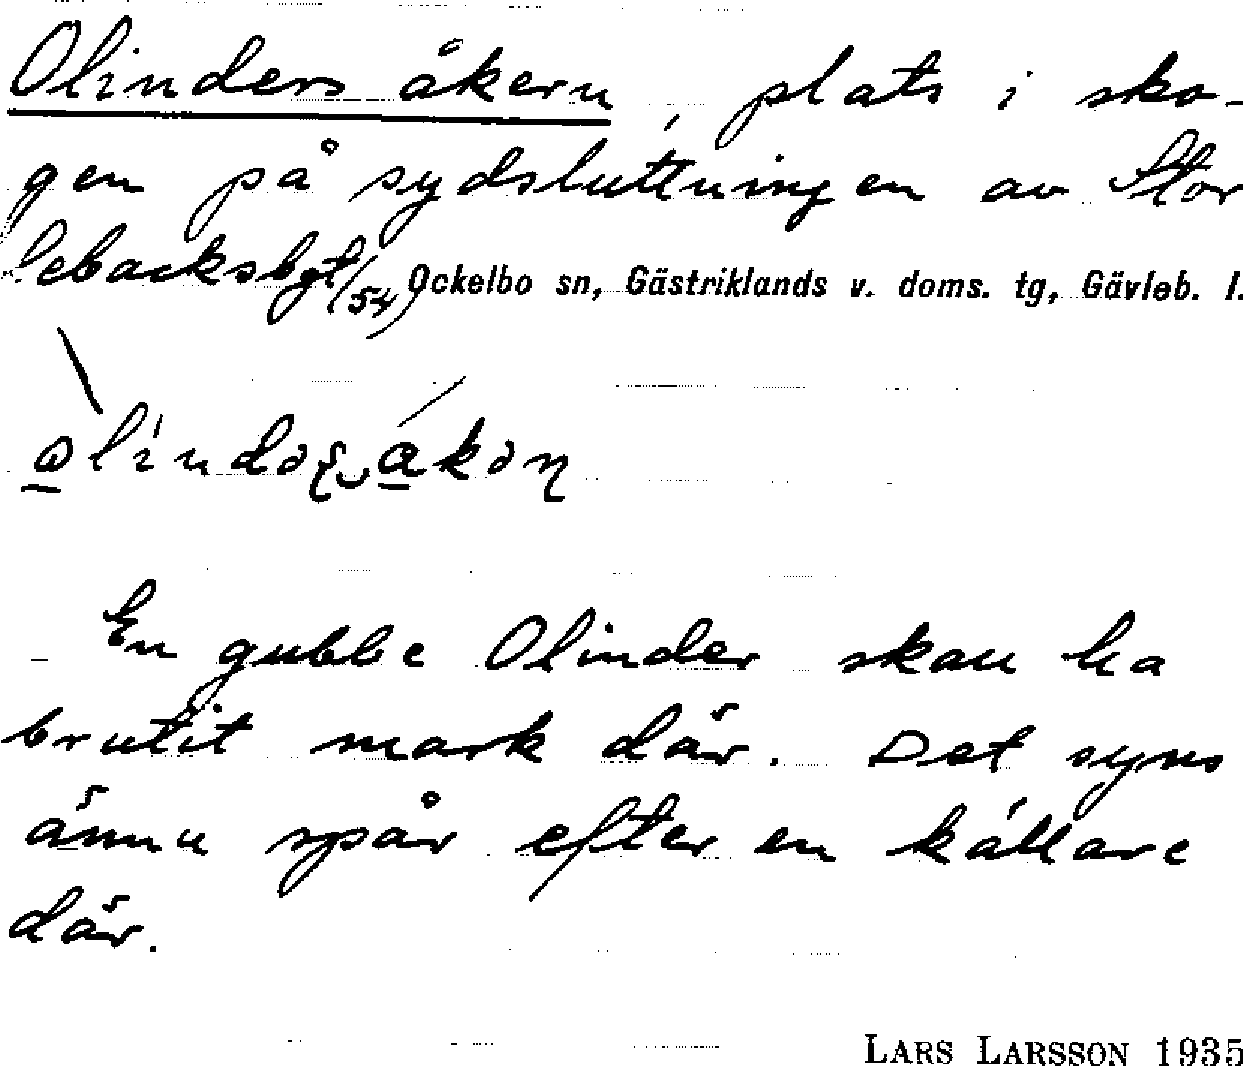 Olinders åkern, plats i sko-
gen på sydsluttningen av Stor
lebacksbgt/54) Ockelbo sn, Gästriklands v. doms. tg, Gävleb. l.
En gubbe Olinder skall ha
brutit mark där. Det syns
ännu spår efter en källare
där.
LARS LARSSON 1935